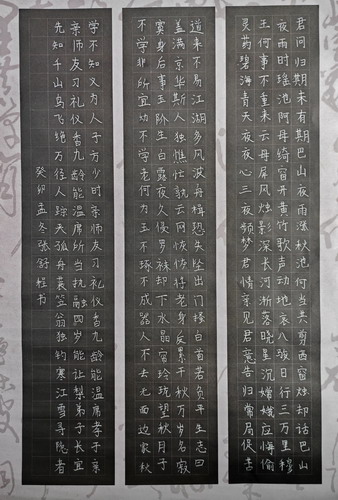 君问归期未有期巴山夜雨涨秋池何当共剪西窗烛却话巴山
夜雨时瑶池阿母绮窗开黄竹歌声动地哀八骏日行三万里穆
王何事不重来云母屏风烛影深长河渐落晓星沉嫦娥应悔偷
灵药碧海青天夜夜心三夜频梦君情亲见君意告归常局促苦
道来不易江湖多风波舟楫恐失坠出门搔白首若负平生志
盖满京华斯人独憔悴孰云网恢恢将老身反累千秋万岁名寂
寞身后事玉阶生白露夜久侵罗袜却下水晶帘玲珑望秋月子
不学非所宜幼不学老何为玉不琢不成器人不
学不知义为人子方少时亲师友习礼仪香九龄能温席孝于亲
亲师友习礼仪香九龄能温席所当执融四岁能让梨弟子长宜
先知千山鸟飞绝万径人踪灭孤舟蓑笠翁独钓寒江雪寻隐者
癸卯孟冬张舒书